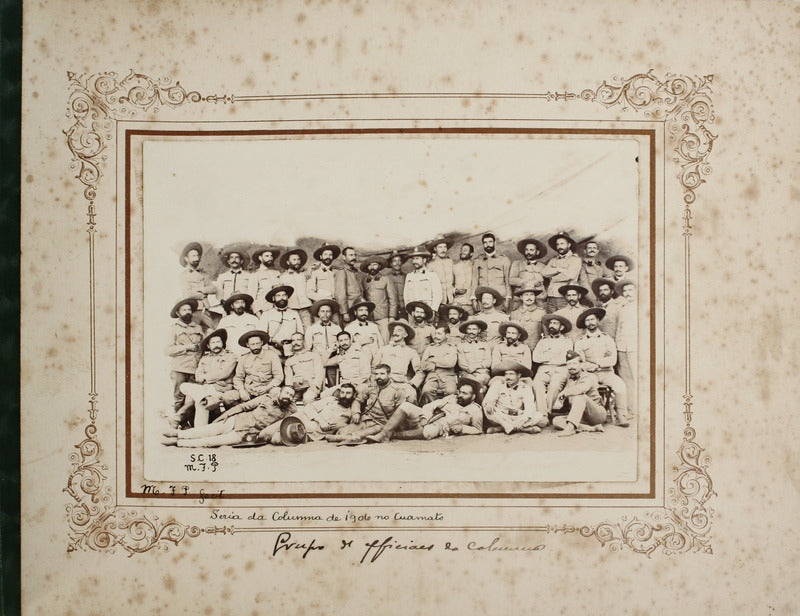 S.C. 18
M. F. P
M. F. P. phot
Seria da Columna de 1906 no Cuamato
Grupo de officiaes da columna